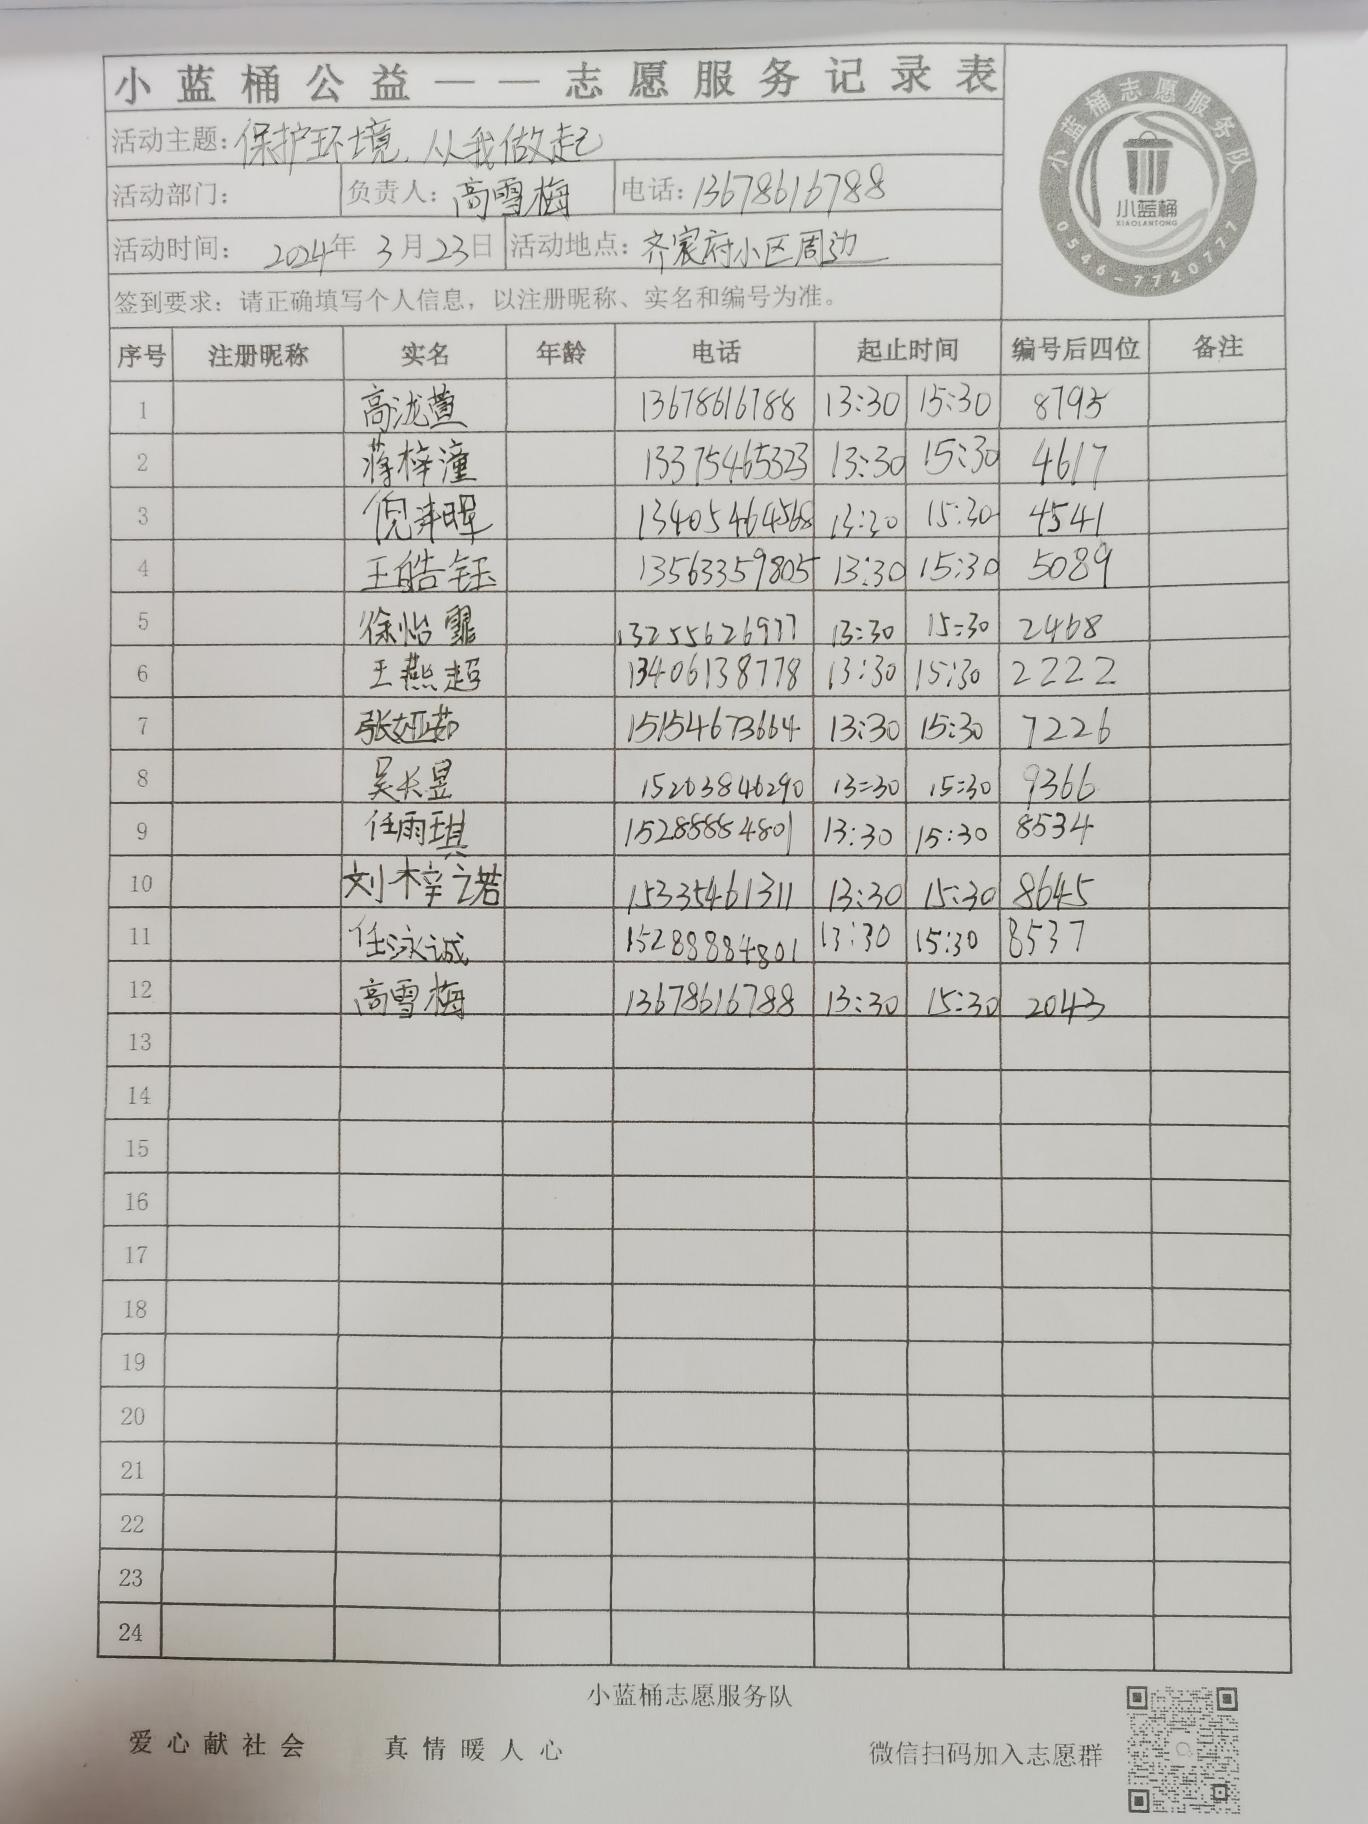 小蓝桶公益——志愿服务记录表
小蓝桶志愿服务队
小蓝桶
XIAOLANTONG
0546-7720777
活动主题：保护环境，从我做起
活动部门： 负责人：高雪梅 电话：13678616788
活动时间：2024年3月23日 活动地点：齐宸府小区周边
签到要求：请正确填写个人信息，以注册昵称、实名和编号为准。
序号 注册昵称 实名 年龄 电话 起止时间 编号后四位 备注
1 高泷萱 13678616788 13:30 15:30 8795
2 蒋梓潼 13375465323 13:30 15:30 4617
3 倪沣暉 13405464568 13:30 15:30 4541
4 王皓钰 13563359805 13:30 15:30 5089
5 徐怡霏 13255626977 13:30 15:30 2468
6 王燕超 13406138778 13:30 15:30 2222
7 张娅茹 15154673664 13:30 15:30 7226
8 吴长昱 15263846290 13:30 15:30 9366
9 任雨琪 15288884801 13:30 15:30 8534
10 刘梓之若 15335461311 13:30 15:30 8645
11 任泳诚 15288884801 13:30 15:30 8537
12 高雪梅 13678616788 13:30 15:30 2043
13
14
15
16
17
18
19
20
21
22
23
24
小蓝桶志愿服务队
爱心献社会 真情暖人心 微信扫码加入志愿群